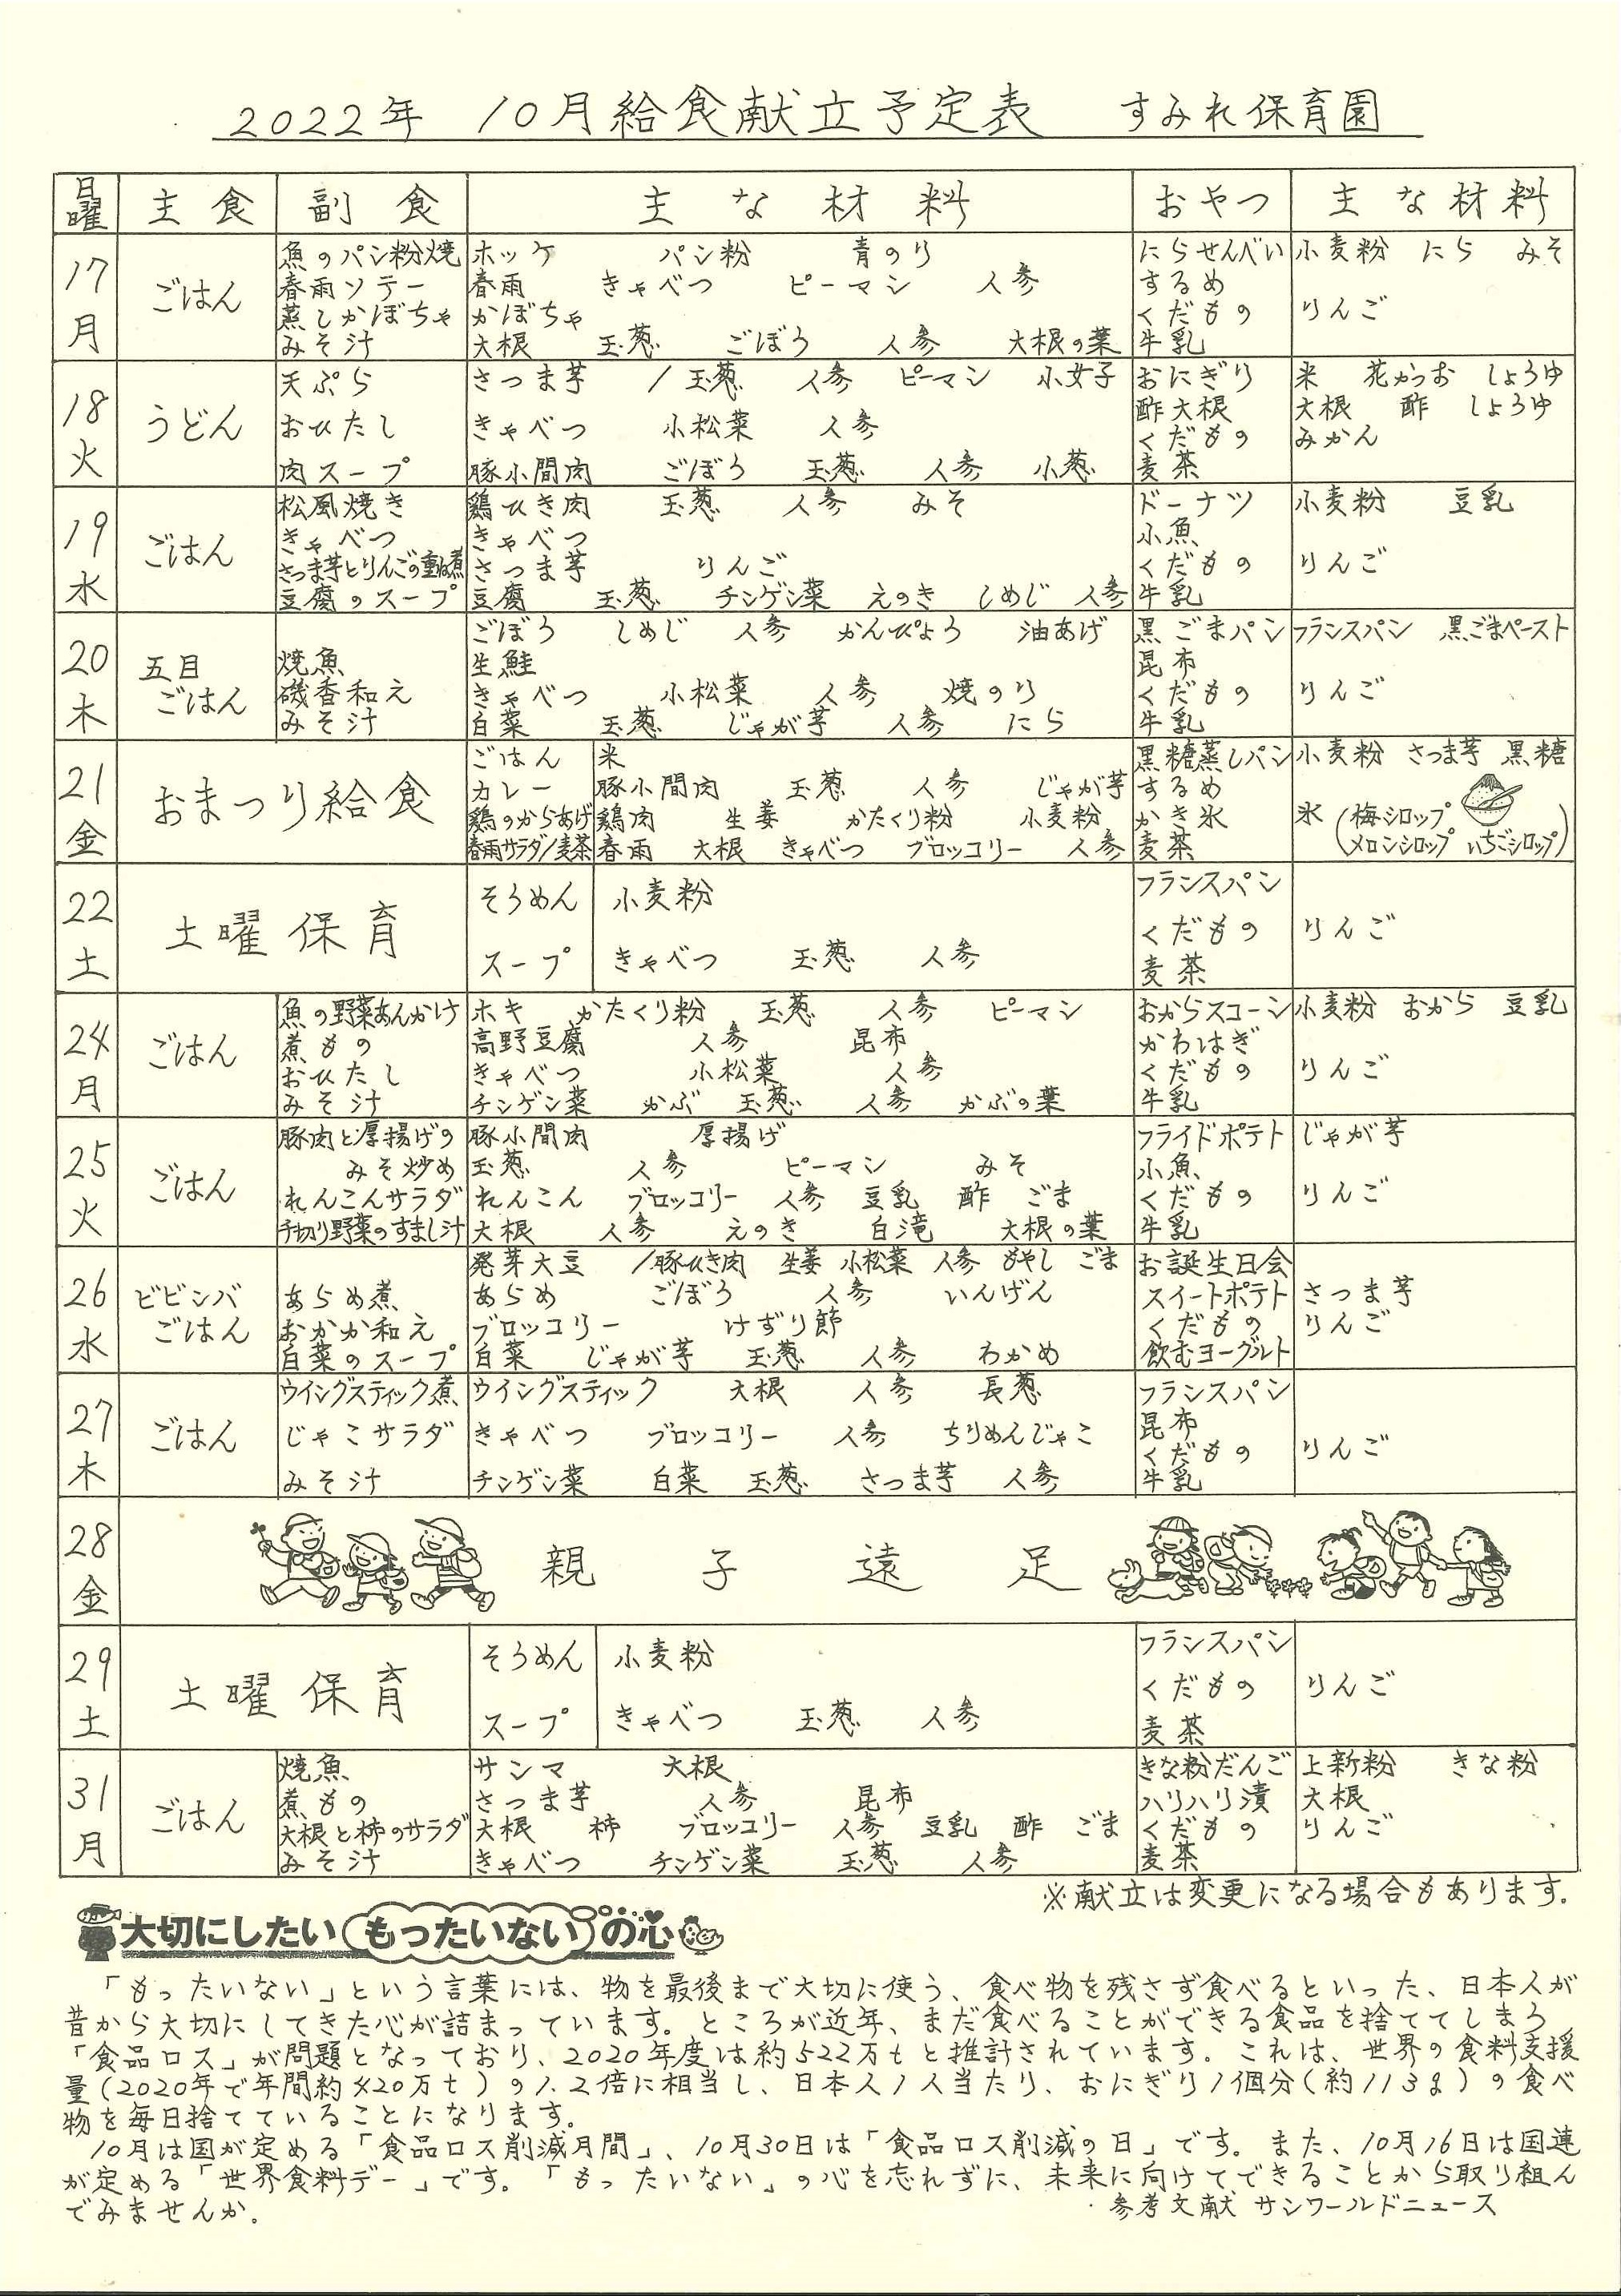 2022年 10月給食献立予定表 すみれ保育園
日曜 主食 副食 主な材料 おやつ 主な材料
17 月 ごはん
魚のパン粉焼 ホッケ パン粉 青のり にらせんべい 小麦粉 にら みそ
春雨ソテー 春雨 きゃべつ ピーマン 人参 するめ
蒸しかぼちゃ かぼちゃ くだもの りんご
みそ汁 大根 玉葱 ごぼう 人参 大根の葉 牛乳
18 火 うどん
天ぷら さつま芋 / 玉葱 人参 ピーマン 小女子 おにぎり 米 花かつお しょうゆ
酢大根 大根 酢 しょうゆ
おひたし きゃべつ 小松菜 人参 くだもの みかん
肉スープ 豚小間肉 ごぼう 玉葱 人参 小葱 麦茶
19 水 ごはん
松風焼き 鶏ひき肉 玉葱 人参 みそ ドーナツ 小麦粉 豆乳
きゃべつ きゃべつ 小魚
さつま芋とりんごの重ね煮 さつま芋 りんご くだもの りんご
豆腐のスープ 豆腐 玉葱 チンゲン菜 えのき しめじ 人参 牛乳
20 木 五目ごはん
ごぼう しめじ 人参 かんぴょう 油あげ 黒ごまパン フランスパン 黒ごまペースト
焼魚 生鮭 昆布
磯香和え きゃべつ 小松菜 人参 焼のり くだもの りんご
みそ汁 白菜 玉葱 じゃが芋 人参 にら 牛乳
21 金 おまつり給食
ごはん 米 黒糖蒸しパン 小麦粉 さつま芋 黒糖
カレー 豚小間肉 玉葱 人参 じゃが芋 するめ
鶏のからあげ 鶏肉 生姜 かたくり粉 小麦粉 かき氷 氷 (梅シロップ
春雨サラダ/麦茶 春雨 大根 きゃべつ ブロッコリー 人参 麦茶 メロンシロップ いちごシロップ)
22 土 土曜保育
そうめん 小麦粉 フランスパン
くだもの りんご
スープ きゃべつ 玉葱 人参 麦茶
24 月 ごはん
魚の野菜あんかけ ホキ かたくり粉 玉葱 人参 ピーマン おからスコーン 小麦粉 おから 豆乳
煮もの 高野豆腐 人参 昆布 かわはぎ
おひたし きゃべつ 小松菜 人参 くだもの りんご
みそ汁 チンゲン菜 かぶ 玉葱 人参 かぶの葉 牛乳
25 火 ごはん
豚肉と厚揚げの 豚小間肉 厚揚げ フライドポテト じゃが芋
みそ炒め 玉葱 人参 ピーマン みそ 小魚
れんこんサラダ れんこん ブロッコリー 人参 豆乳 酢 ごま くだもの りんご
千切り野菜のすまし汁 大根 人参 えのき 白滝 大根の葉 牛乳
26 水 ビビンバごはん
発芽大豆 /豚ひき肉 生姜 小松菜 人参 もやし ごま お誕生日会
あらめ煮 あらめ ごぼう 人参 いんげん スイートポテト さつま芋
おかか和え ブロッコリー けずり節 くだもの りんご
白菜のスープ 白菜 じゃが芋 玉葱 人参 わかめ 飲むヨーグルト
27 木 ごはん
ウイングスティック煮 ウイングスティック 大根 人参 長葱 フランスパン
昆布
じゃこサラダ きゃべつ ブロッコリー 人参 ちりめんじゃこ くだもの りんご
みそ汁 チンゲン菜 白菜 玉葱 さつま芋 人参 牛乳
28 金 親子遠足
29 土 土曜保育
そうめん 小麦粉 フランスパン
くだもの りんご
スープ きゃべつ 玉葱 人参 麦茶
31 月 ごはん
焼魚 サンマ 大根 きな粉だんご 上新粉 きな粉
煮もの さつま芋 人参 昆布 ハリハリ漬 大根
大根と柿のサラダ 大根 柿 ブロッコリー 人参 豆乳 酢 ごま くだもの りんご
みそ汁 きゃべつ チンゲン菜 玉葱 人参 麦茶
※献立は変更になる場合もあります。
大切にしたい もったいない の心
「もったいない」という言葉には、物を最後まで大切に使う、食べ物を残さず食べるといった、日本人が
昔から大切にしてきた心が詰まっています。ところが近年、まだ食べることができる食品を捨ててしまう
「食品ロス」が問題となっており、2020年度は約522万tと推計されています。これは、世界の食料支援
量(2020年で年間約420万t)の1.2倍に相当し、日本人1人当たり、おにぎり1個分(約113g)の食べ
物を毎日捨てていることになります。
10月は国が定める「食品ロス削減月間」、10月30日は「食品ロス削減の日」です。また、10月16日は国連
が定める「世界食料デー」です。「もったいない」の心を忘れずに、未来に向けてできることから取り組ん
でみませんか。
参考文献 サンワールドニュース